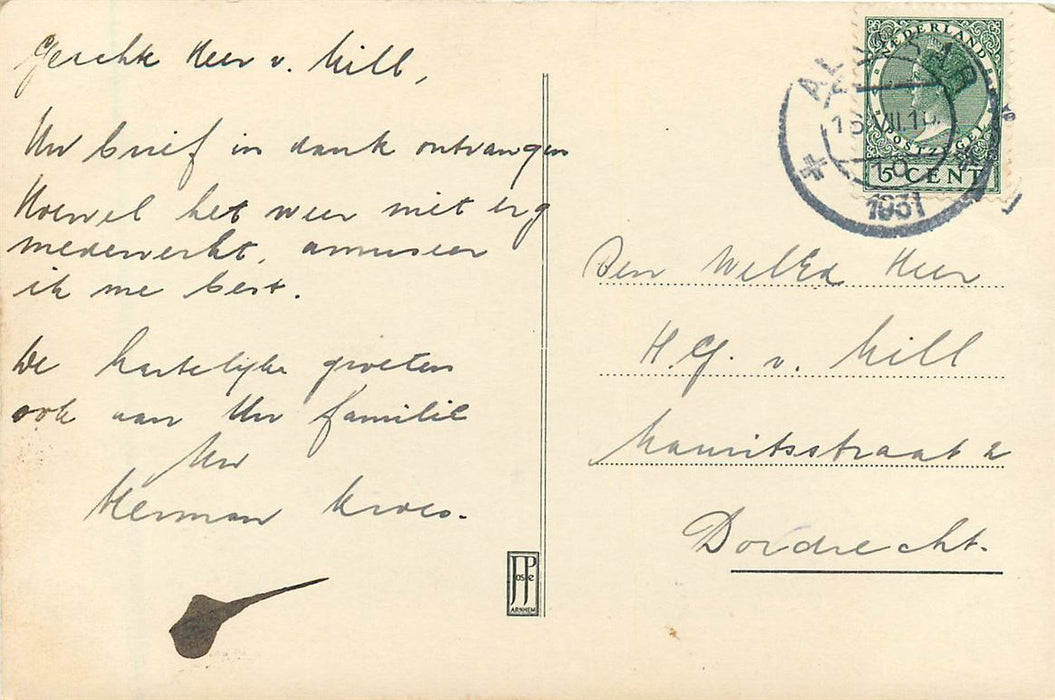 Geachte Heer v. Mill,
Uw brief in dank ontvangen
Hoewel het weer niet erg
medewerkt, amuseer
ik me best.
De hartelijke groeten
ook aan Uw familie
Uw
Herman Kroes.
NEDERLAND
POSTZEGEL
5 CENT
1931
Den WelEd Heer
H.G. v. Mill
Mauritsstraat 2
Dordrecht.
JosPe
ARNHEM